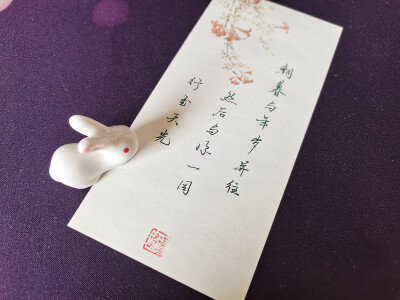 朝暮与年岁并往
然后与你一同
行至天光